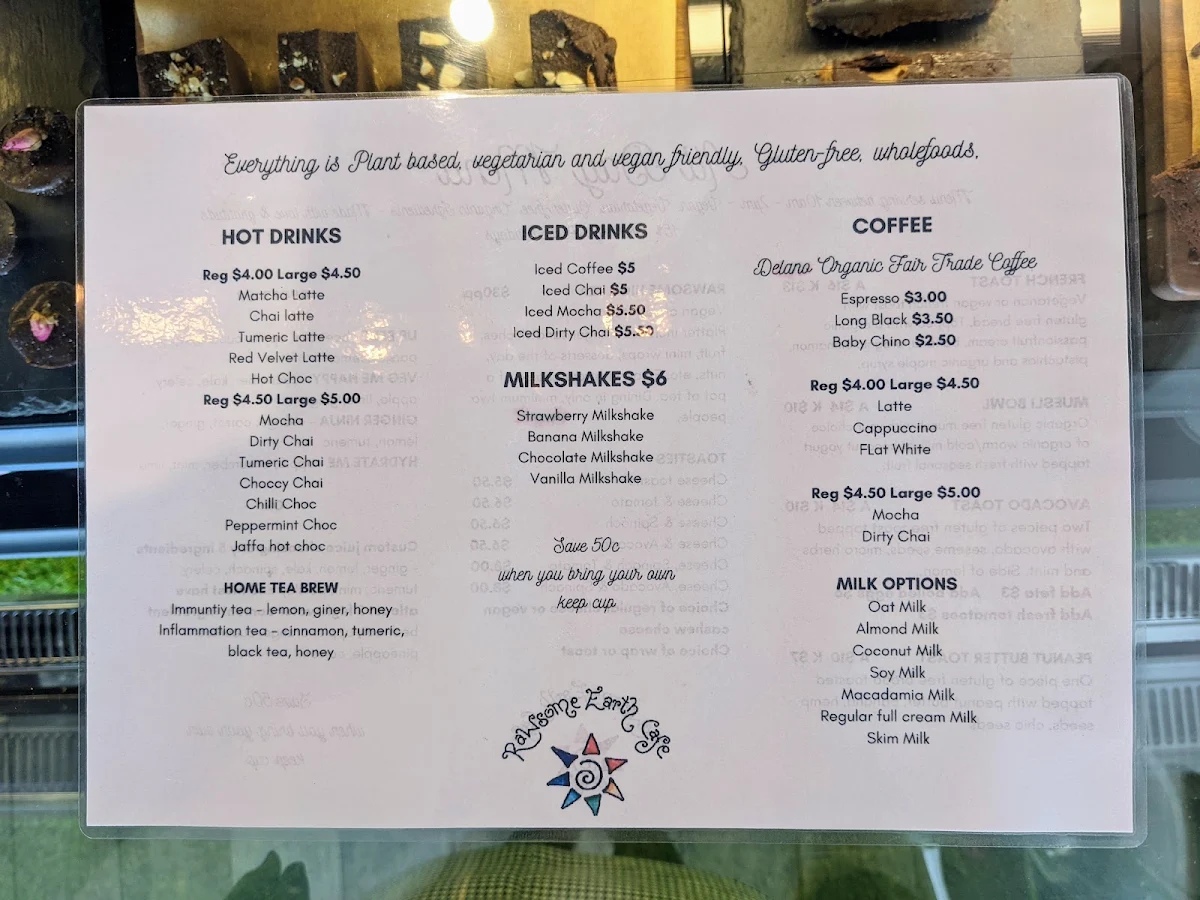 Everything is Plant based, vegetarian and vegan friendly, Gluten-free, wholefoods,
HOT DRINKS
Reg $4.00 Large $4.50
Matcha Latte
Chai latte
Tumeric Latte
Red Velvet Latte
Hot Choc
Reg $4.50 Large $5.00
Mocha
Dirty Chai
Tumeric Chai
Choccy Chai
Chilli Choc
Peppermint Choc
Jaffa hot choc
HOME TEA BREW
Immuntiy tea – lemon, giner, honey
Inflammation tea – cinnamon, tumeric,
black tea, honey
ICED DRINKS
Iced Coffee $5
Iced Chai $5
Iced Mocha $5.50
Iced Dirty Chai $5.50
MILKSHAKES $6
Strawberry Milkshake
Banana Milkshake
Chocolate Milkshake
Vanilla Milkshake
Save 50c
when you bring your own
keep cup
Rawsome Earth Cafe
COFFEE
Delano Organic Fair Trade Coffee
Espresso $3.00
Long Black $3.50
Baby Chino $2.50
Reg $4.00 Large $4.50
Latte
Cappuccino
FLat White
Reg $4.50 Large $5.00
Mocha
Dirty Chai
MILK OPTIONS
Oat Milk
Almond Milk
Coconut Milk
Soy Milk
Macadamia Milk
Regular full cream Milk
Skim Milk